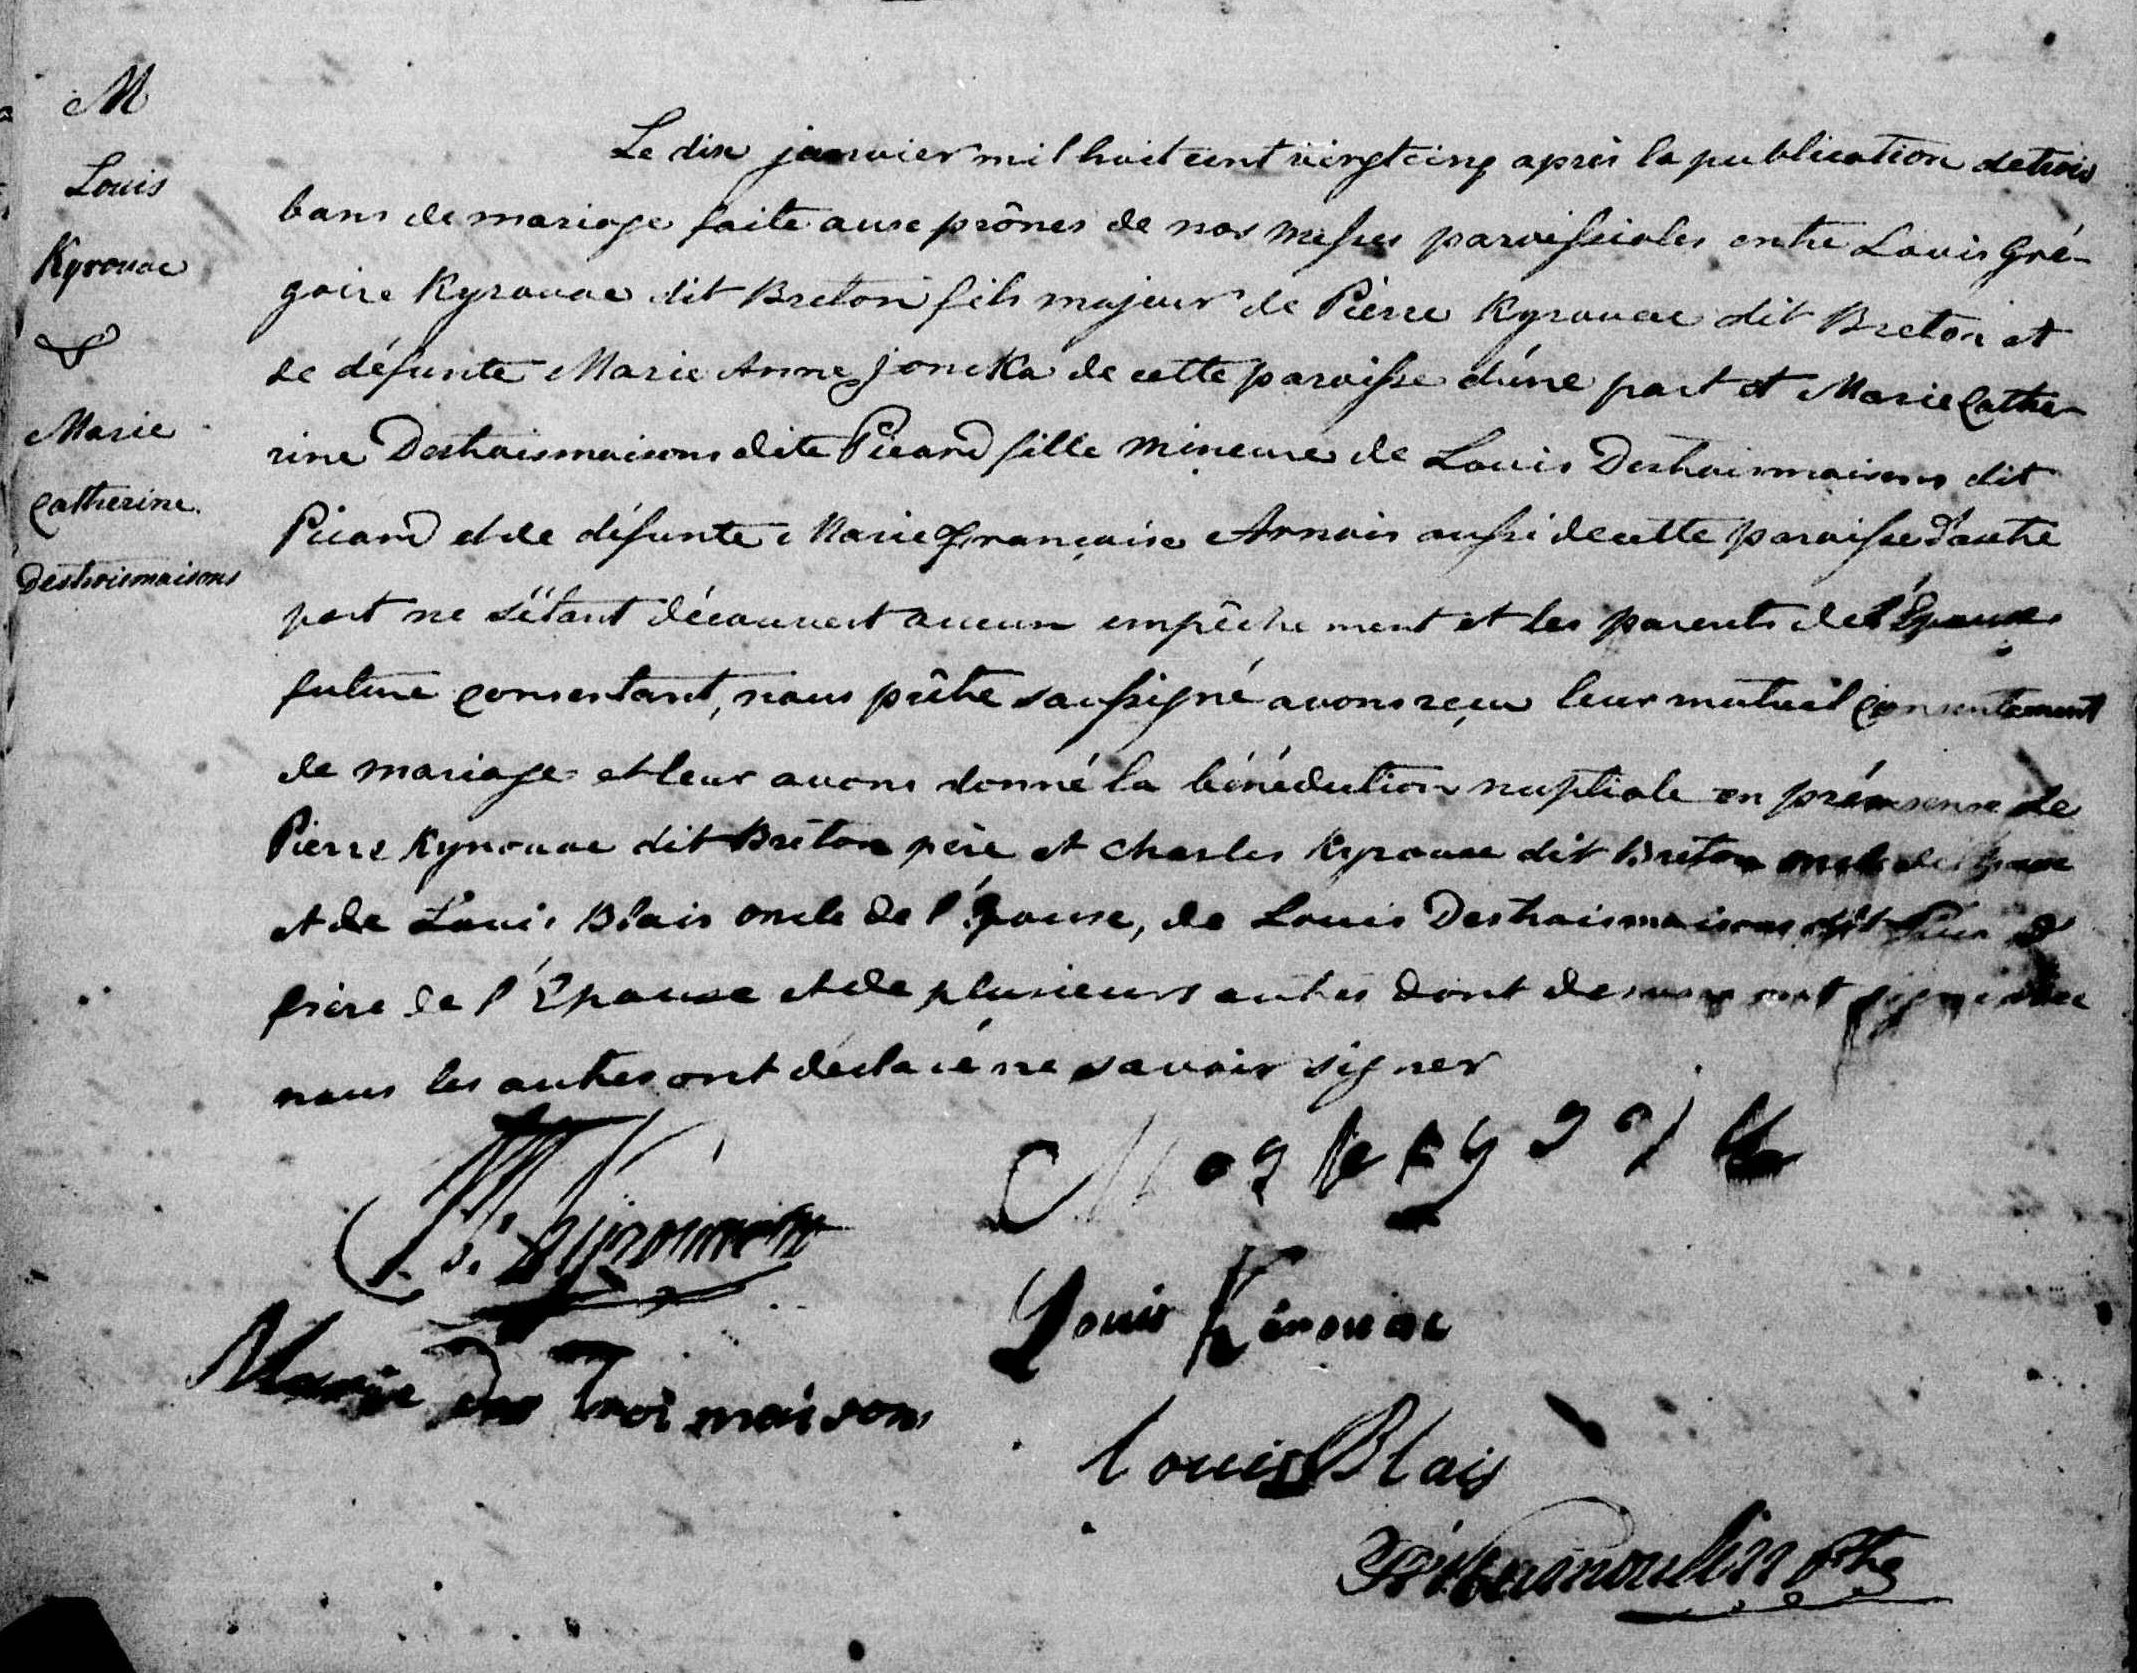 M
Louis
Kyrouac
&
Marie
Catherine
Destroismaisons
Le dix janvier mil huit cent vingt cinq après la publication de trois
bans de mariage faite aux prônes de nos messes paroissiales entre Louis Gré-
goire Kyrouac dit Breton fils majeur de Pierre Kyrouac dit Breton et
de défunte Marie Anne Joncka de cette paroisse d'une part et Marie Cathe-
rine Destroismaisons dite Picard fille mineure de Louis Destroismaisons dit
Picard et de défunte Marie Françoise Arnois aussi de cette paroisse d'autre
part ne s'étant découvert aucun empêchement et les parents de l'Épouse
future consentant, nous prêtre soussigné avons reçu leur mutuel consentement
de mariage et leur avons donné la bénédiction nuptiale en présense de
Pierre Kyrouac dit Breton père et Charles Kyrouac dit Breton oncle de l'époux
et de Louis Blais oncle de l'Épouse, de Louis Destroismaisons dit Picard
frère de l'Épouse et de plusieurs autres dont ont signé avec
nous les autres ont déclaré ne savoir signer
Louis Kérouac
Marie Des Troi maisons
Louis Blais